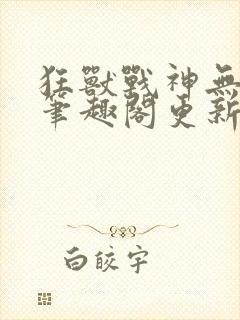 狂獸戰神無
筆趣閣更新
白皎宇